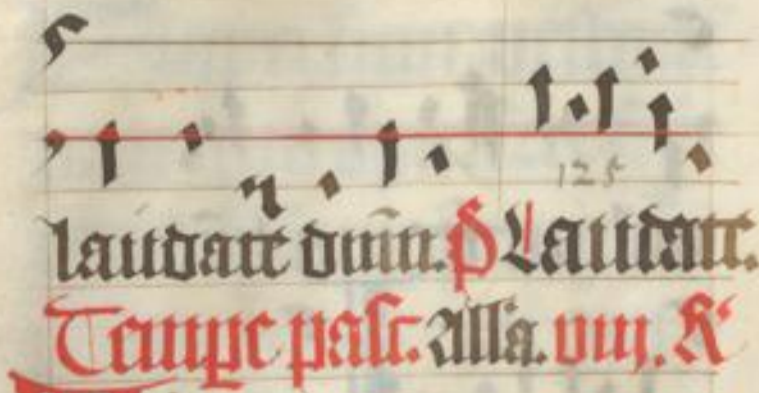 125
laudate dnm. P Laudate.
Tempe pasc. Alla. viij. R